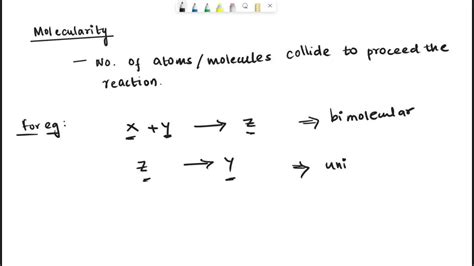 Molecularity
- No. of atoms/molecules collide to proceed the
reaction.
For eg: x + y → z ⇒ bimolecular
z → y ⇒ uni